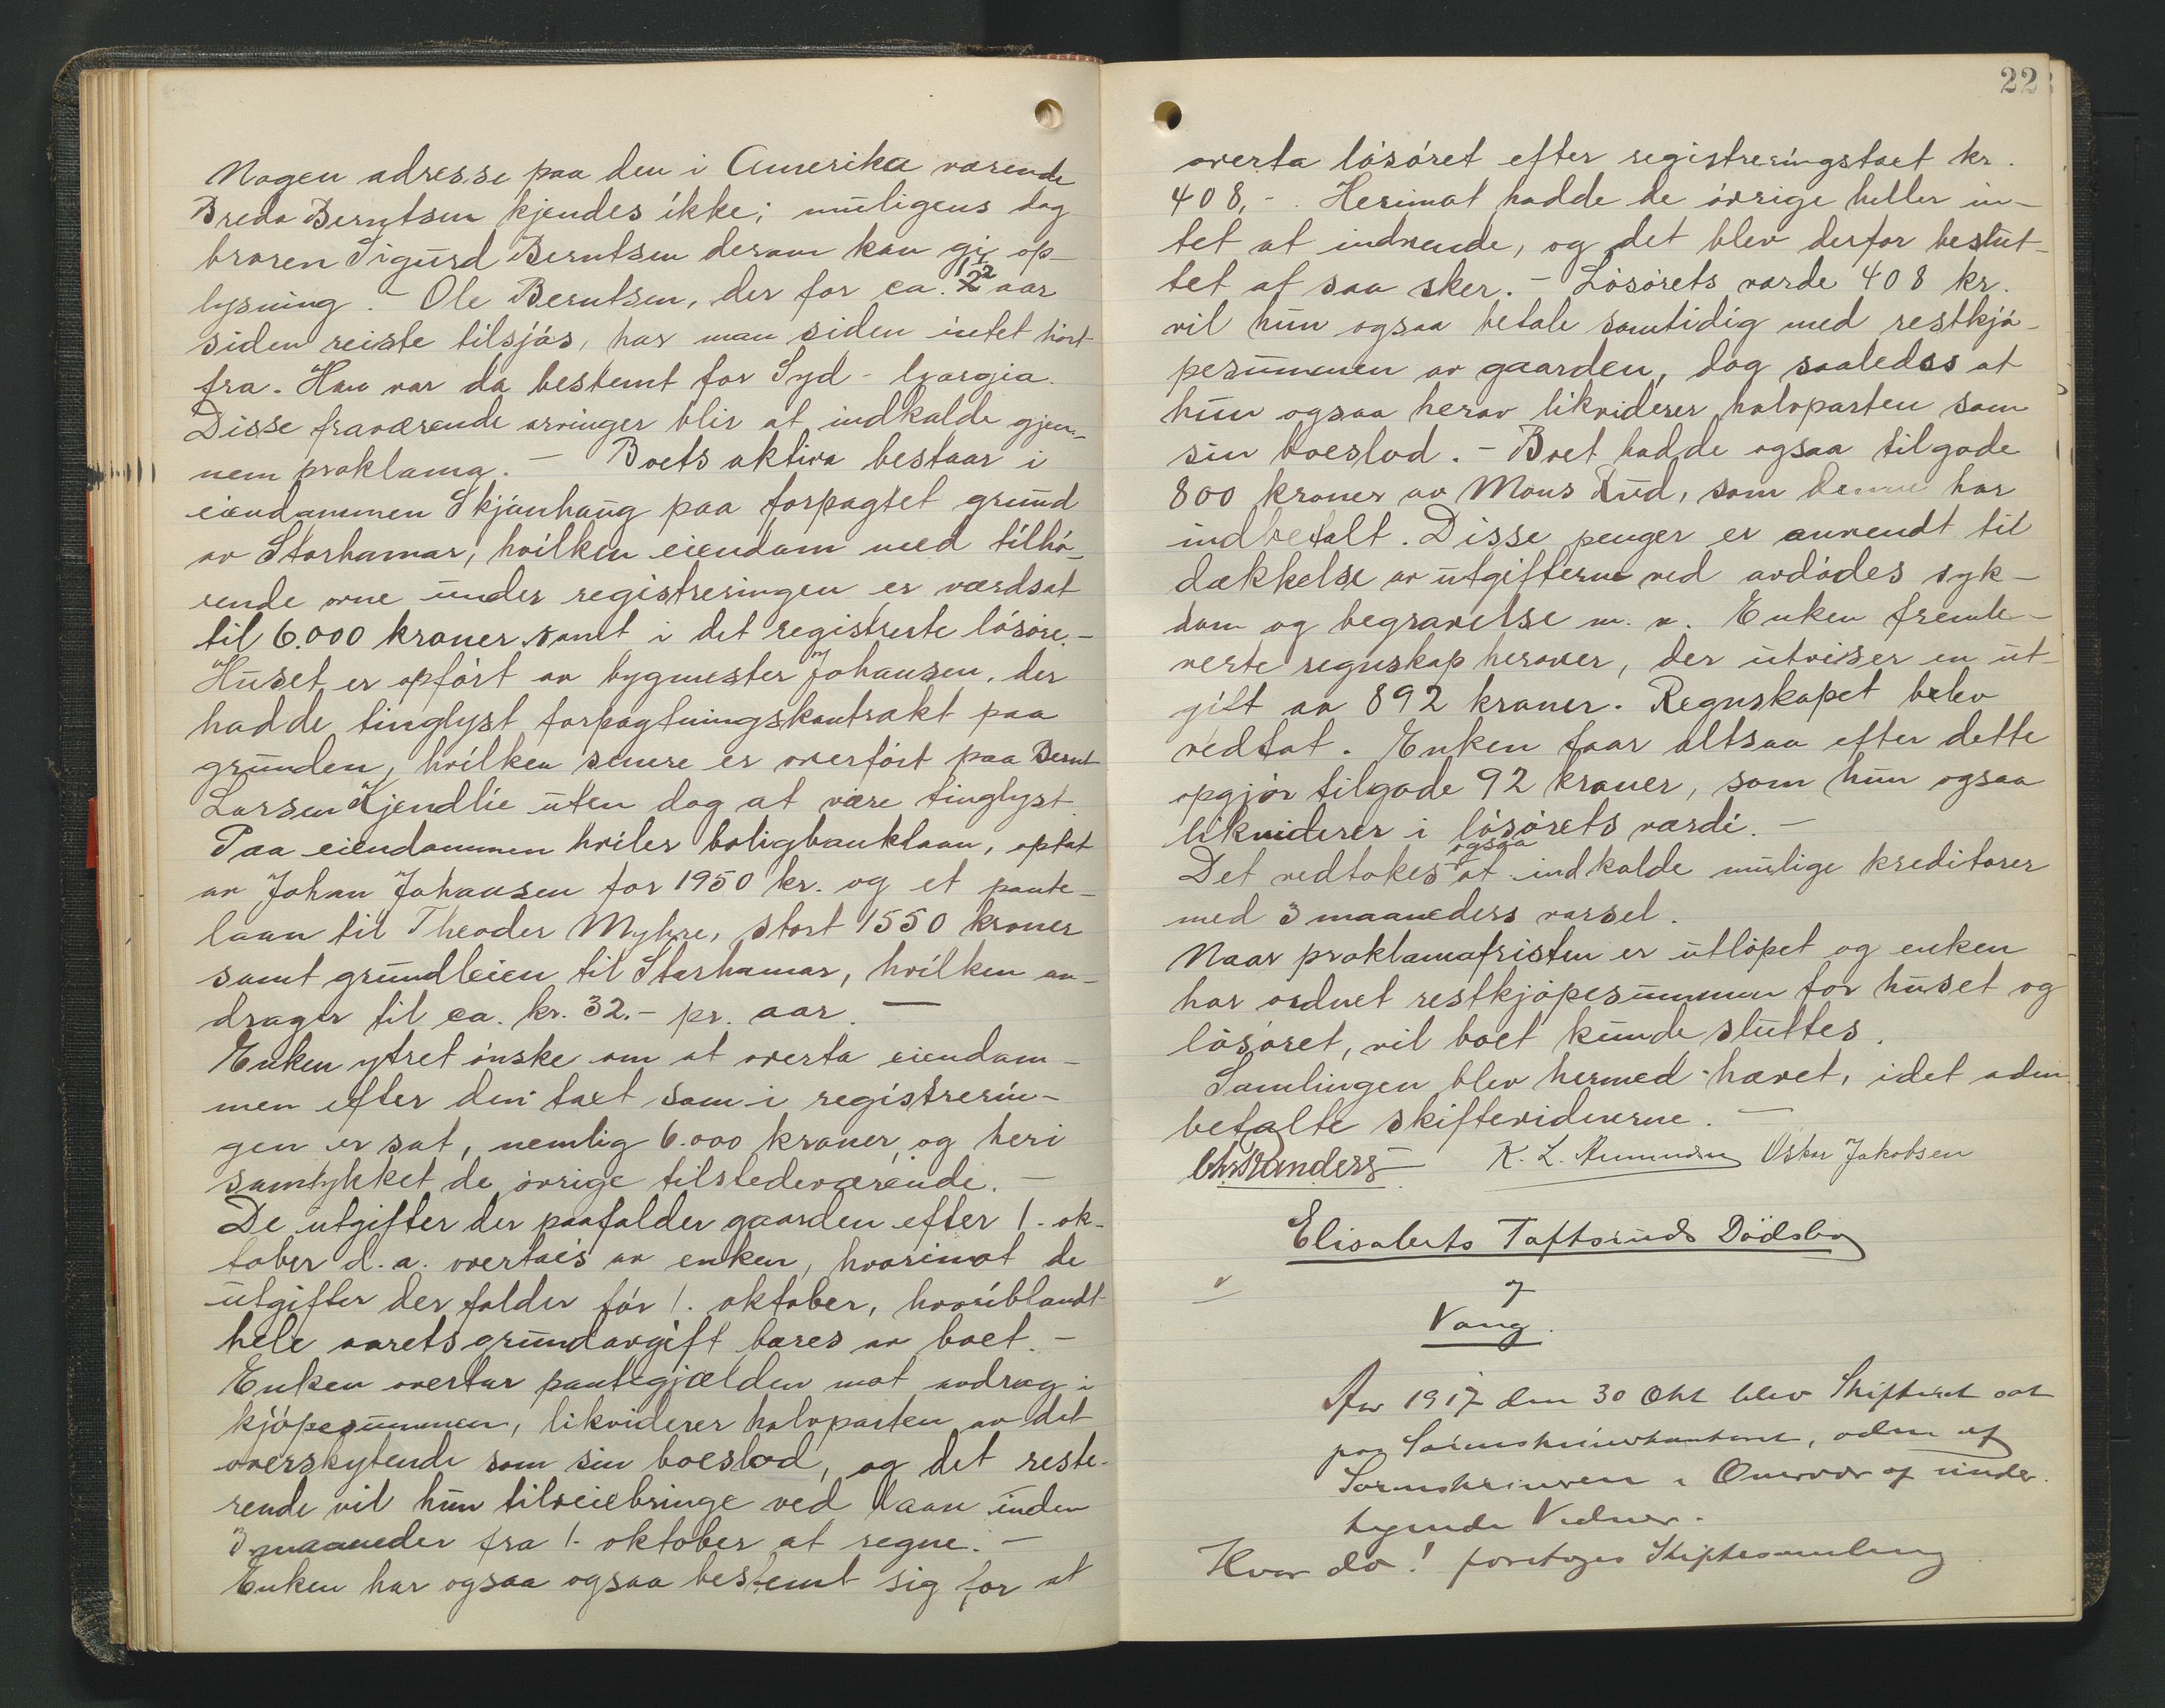 Nogen adresse paa den i Amerika værende
Breda Berntsen kjendes ikke; muligens dog
broren Sigurd Berntsen derom kan gi op-
lysning. - Ole Berntsen, der for ca. 1½ aar
siden reiste tilsjös, har man siden intet hört
fra. Han var da bestemt for Syd-Georgia.
Disse fraværende arvinger blir at indkalde gjen-
nem proklama. - Boets aktiva bestaar i
eiendommen Skjönhaug paa forpagtet grund
av Storhamar, hvilken eiendom med tilhö-
rende ovne under registreringen er værdsat
til 6.000 kroner samt i det registrerte lösöre. -
Huset er opfört av bygmester Johansen, der
hadde tinglyst forpagtningskontrakt paa
grunden, hvilken senere er overfört paa Bernt
Larsen Kjendlie uten dog at være tinglyst.
Paa eiendommen hviler boligbanklaan, optat
av Johan Johansen for 1950 kr. og et pante-
laan til Theodor Myhre, stort 1550 kroner
samt grundleien til Storhamar, hvilken an-
drager til ca. kr. 32.- pr. aar. -
Enken ytret önske om at overta eiendom-
men efter den taxt som i registrerin-
gen er sat, nemlig 6.000 kroner, og heri
samtykket de övrige tilstedeværende. -
De utgifter der paafalder gaarden efter 1. ok-
tober d. a. overtaes av enken, hvorimot de
utgifter der falder för 1. oktober, hvoriblandt
hele aarets grundavgift bæres av boet. -
Enken overtar pantegjælden mot avdrag i
kjöpesummen, likviderer halvparten av det
overskytende som sin boeslod, og det reste-
rende vil hun tilveiebringe ved laan inden
3 maaneder fra 1. oktober at regne. -
Enken har ogsaa ogsaa bestemt sig for at
22
overta lösöret efter registreringstaxt kr.
408,-. Herimot hadde de övrige heller in-
tet at indvende, og det blev derfor beslut-
tet at saa sker. - Lösörets værde 408 kr.
vil hun ogsaa betale samtidig med restkjö-
pesummen av gaarden, dog saaledes at
hun ogsaa herav likviderer halvparten som
sin boeslod. - Boet hadde ogsaa tilgode
800 kroner av Mons Rud, som denne har
indbetalt. Disse penger er anvendt til
dækkelse av utgifterne ved avdödes syk-
dom og begravelse m. v. Enken fremle-
verte regnskap herover, der utviser en ut-
gift av 892 kroner. Regnskapet blev
vedtat. Enken faar altsaa efter dette
opgjör tilgode 92 kroner, som hun ogsaa
likviderer i lösörets værdi. -
Det vedtokes ogsaa at indkalde mulige kreditorer
med 3 maaneders varsel.
Naar proklamafristen er utlöpet og enken
har ordnet restkjöpesummen for huset og
lösöret, vil boet kunde sluttes.
Samlingen blev hermed hævet, idet adm.
betalte skiftevidnerne. -
Chr Sanders K. L. Amundsen Oskar Jakobsen
Elisabets Toftsruds Dödsbo
af
Vang.
Aar 1917 den 30 Okt blev Skifteret sat
paa Sorenskriverkontoret, adm af
Sorenskriveren i Overvær af under-
tegnede Vidner.
Hvor da! foretoges Skiftesamling